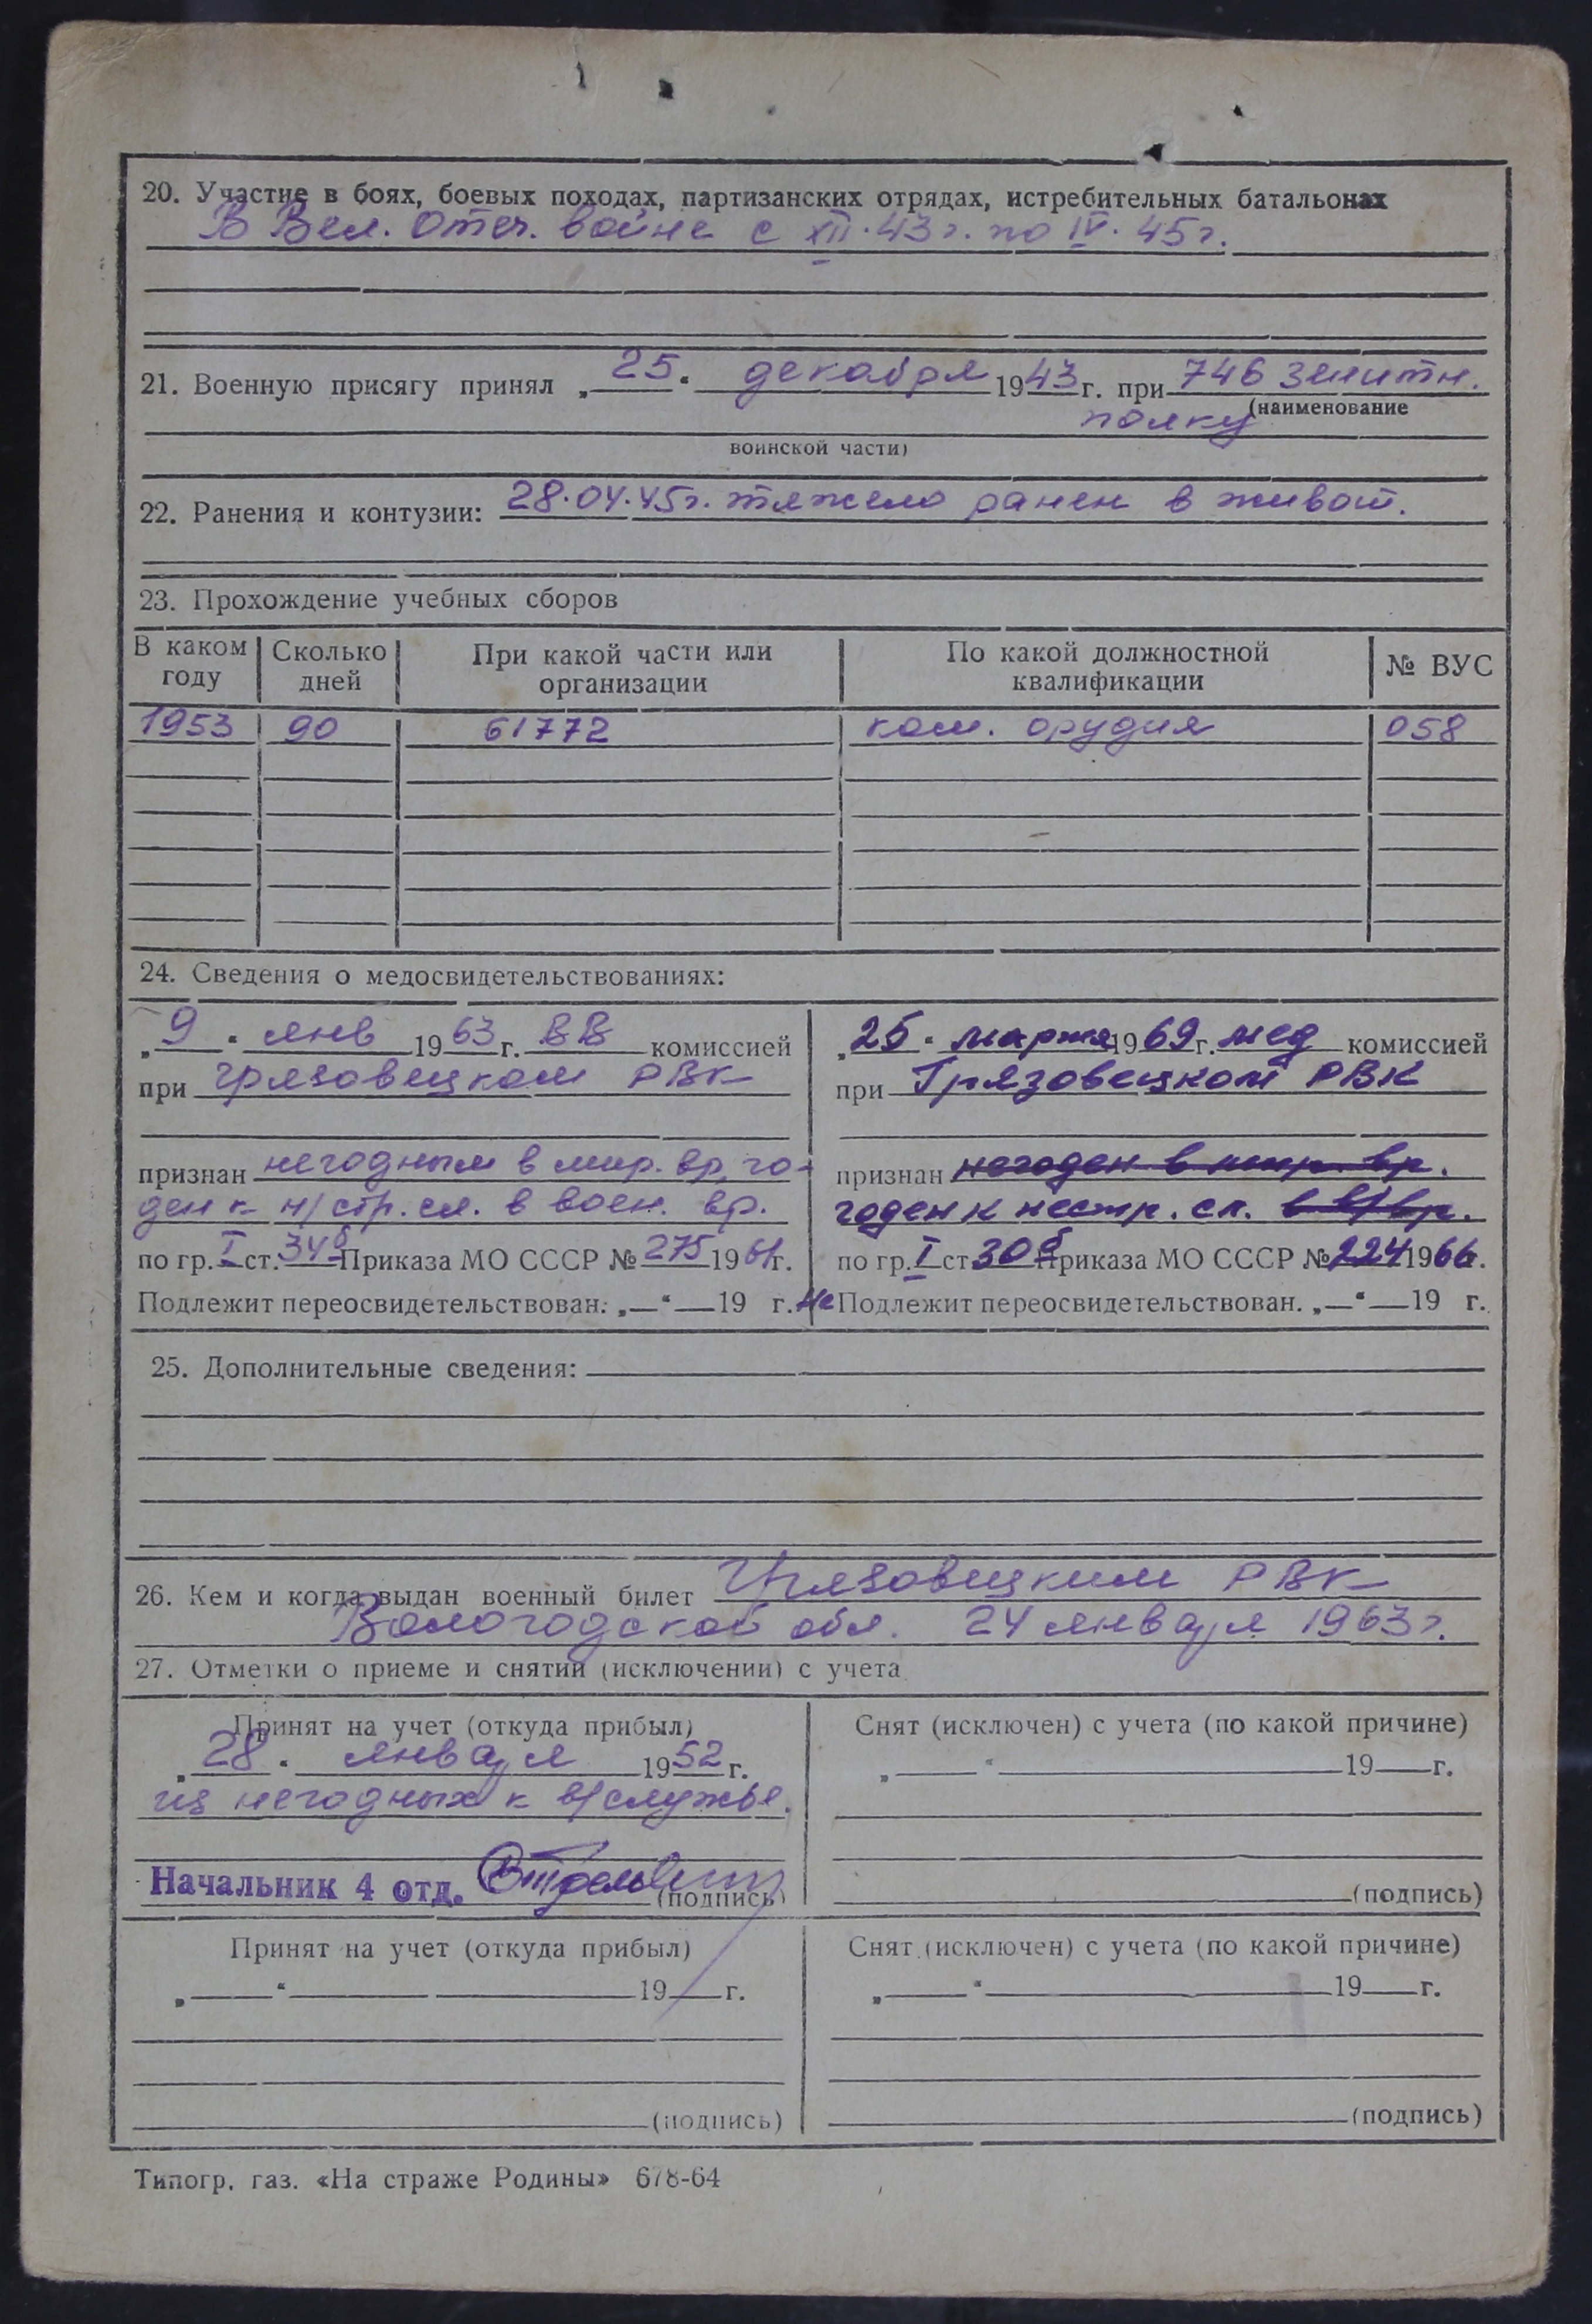 20. Участие в боях, боевых походах, партизанских отрядах, истребительных батальонах
В Вел. Отеч. войне с XII.43 г. по IV.45 г.
21. Военную присягу принял „25" декабря 1943 г. при 746 зенитн.
полку (наименование
воинской части)
22. Ранения и контузии: 28.04.45 г. тяжело ранен в живот.
23. Прохождение учебных сборов
В каком году | Сколько дней | При какой части или организации | По какой должностной квалификации | № ВУС
1953 | 90 | 61772 | ком. орудия | 058
24. Сведения о медосвидетельствованиях:
„9" янв 1963 г. ВВ комиссией
при Грязовецком РВК
признан негодным в мир. вр, го-
ден к н/стр. сл. в воен. вр.
по гр. I ст. 34б Приказа МО СССР № 275 1961 г.
Подлежит переосвидетельствован. „—" — 19 г.
„25" марта 1969 г. мед комиссией
при Грязовецком РВК
признан негоден в мир. вр.
годен к нестр. сл. в в/вр.
по гр. I ст 30б Приказа МО СССР № 224 1966 г.
Не Подлежит переосвидетельствован. „—" — 19 г.
25. Дополнительные сведения:
26. Кем и когда выдан военный билет Грязовецким РВК
Вологодской обл. 24 января 1963 г.
27. Отметки о приеме и снятии (исключении) с учета
Принят на учет (откуда прибыл)
„28" января 1952 г.
из негодных к в/службе.
Начальник 4 отд.
(подпись)
Снят (исключен) с учета (по какой причине)
„—" — 19 — г.
(подпись)
Принят на учет (откуда прибыл)
„—" — 19 — г.
(подпись)
Снят (исключен) с учета (по какой причине)
„—" — 19 — г.
(подпись)
Типогр. газ. «На страже Родины» 678-64